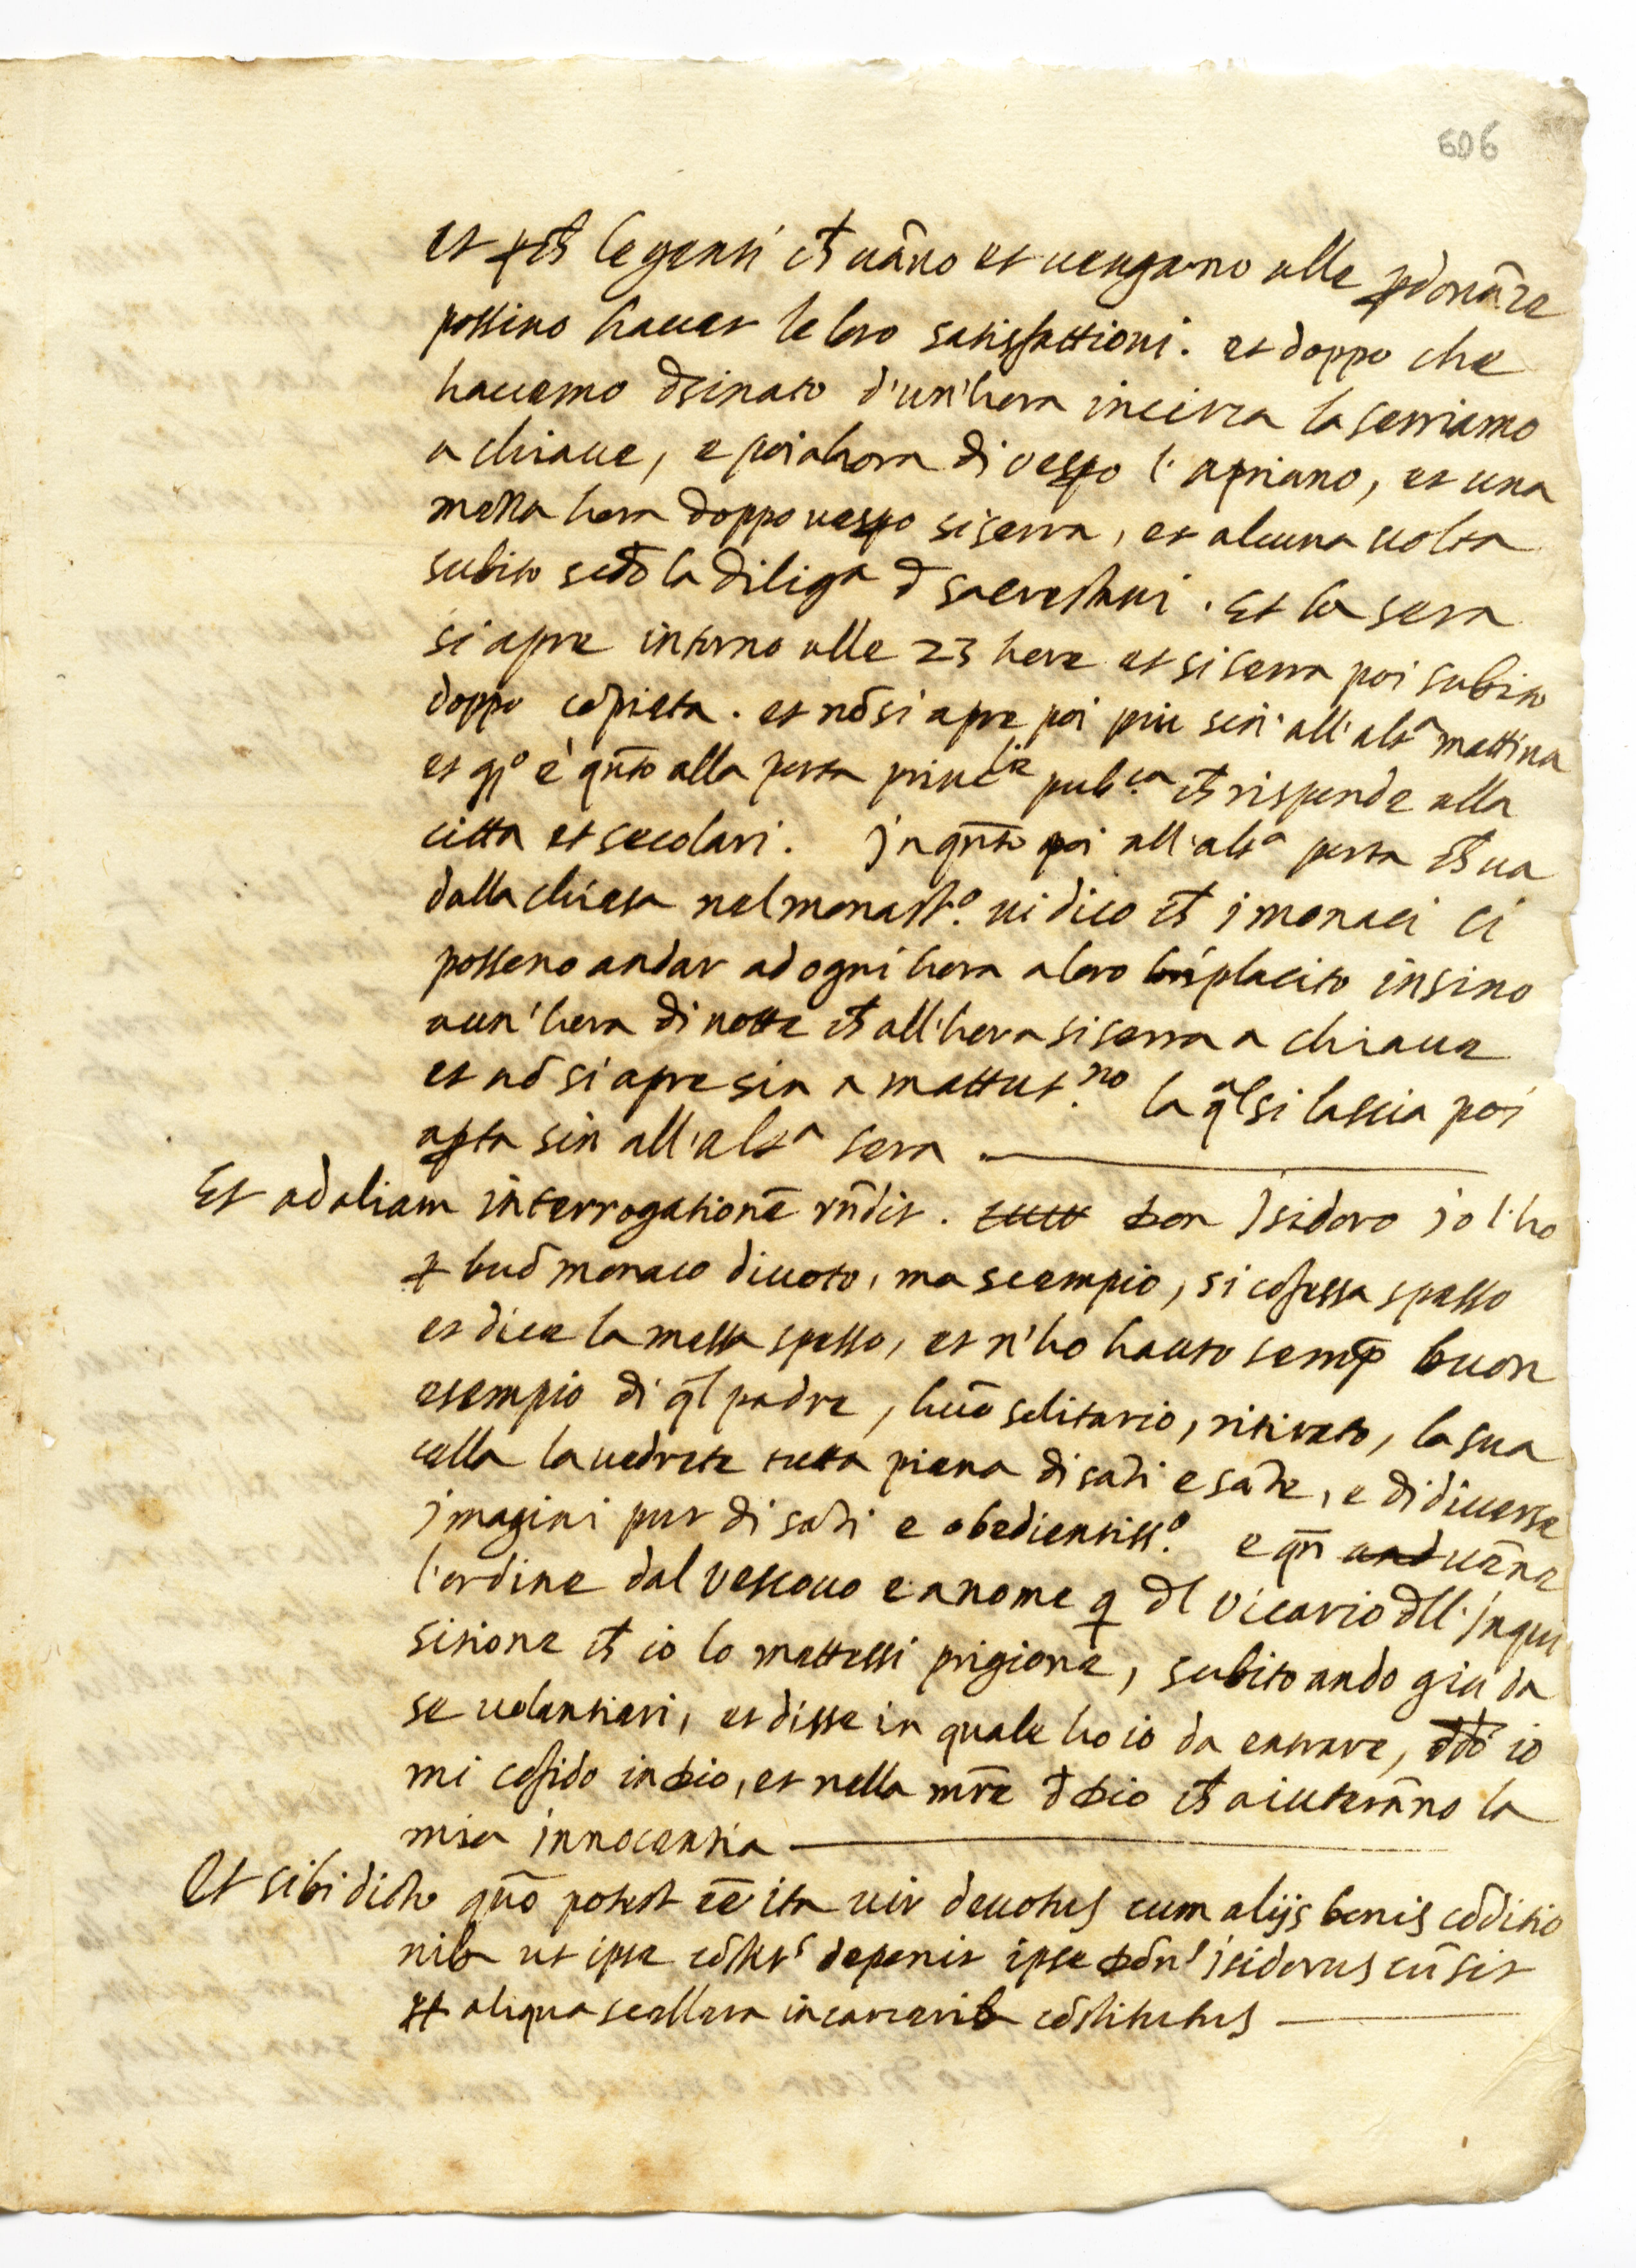 606
et p ch le genti ch uāno et uengano alle pdonāze
possino hauer le loro satisfattioni. et doppo che
hauemo dsinato d'un'hora incirca la serriamo
a chiaue, e poi ahora di vespo l'apriano, et una
mezza hora doppo vespo si serra, et alcuna uolta
subito secōdo la diligᵃ d sacrestani. Et la sera
si apre intorno alle 23 hore et si serra poi subito
doppo cōpieta. et nō si apre poi piu sin' all'altᵃ mattina
et qº è qnto alla porta princˡᵉ pubᶜᵃ ch risponde alla
citta et secolari. Jn qnto poi all'altᵃ porta ch ua
dalla chiesa nel monastº. ui dico ch i monaci ci
posseno andar ad ogni hora a loro bnplacito insino
a un'hora di notte ch all'hora si serra a chiaue
et nō si apre sin a mattutⁿº la ql si lascia poi
apta sin all'altᵃ sera.
Et ad aliam interrogationē rndit. Don Jsidoro io l'ho
p buō monaco diuoto, ma scempio, si cōfessa spesso
et dice la messa spesso, et n'ho hauto semp buon
esempio di ql padre, huō solitario, ritirato, la sua
cella la vedrete tutta piena di sāti e sāte, e di diuerse
imagini pur di sāti e obedientissº. e qn and uēne
l'ordine dal Vescouo e a nome q dl Vicario dll'Jnqui
sitione ch io lo mettessi prigione, subito ando giu da
se uolentieri, et disse in quale ho io da entrare, io
mi cōfido in Dio, et nella mre d Dio ch aiuterāno la
mia innocentia
Et sibi dicto quō potest eē ita uir deuotus cum alijs bonis cōditio
nib ut ipse cōstˢ deponit ipse Dōnˢ isidorus cū sit
pp aliqua scellera in carcerib cōstitutus